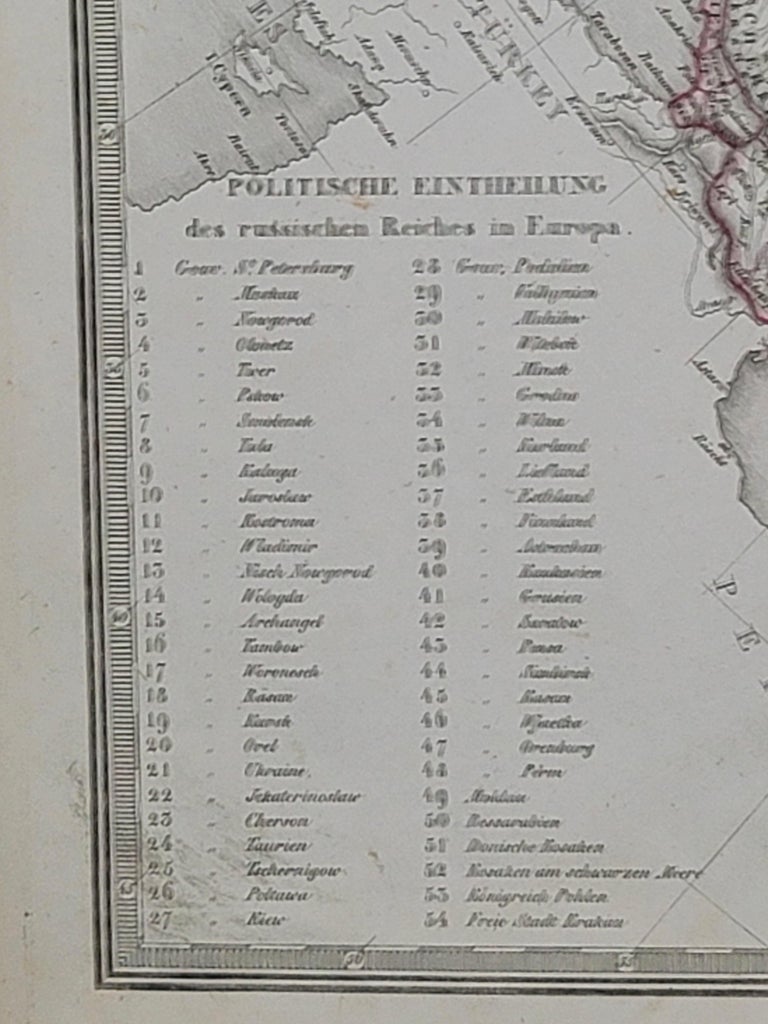 TÜRKEY
I. Cypern
Kaisarieh
Erzerum
Tortosa
Beirut
Acre
POLITISCHE EINTHEILUNG
des russischen Reiches in Europa.
1 Gouv. St. Petersburg
2 " Moskau
3 " Nowgorod
4 " Olonetz
5 " Twer
6 " Pskow
7 " Smolensk
8 " Tula
9 " Kaluga
10 " Jaroslaw
11 " Kostroma
12 " Wladimir
13 " Nisch Nowgorod
14 " Wologda
15 " Archangel
16 " Tambow
17 " Woronesch
18 " Räsan
19 " Kursk
20 " Orel
21 " Ukraine.
22 " Jekaterinoslaw
23 " Cherson
24 " Taurien
25 " Tschernigow
26 " Poltawa
27 " Kiew
28 Gouv. Podolien
29 " Volhynien
30 " Mohilew
31 " Witebsk
32 " Minsk
33 " Grodno
34 " Wilna
35 " Kurland
36 " Liefland
37 " Esthland
38 " Finnland
39 " Astrachan
40 " Kaukasien
41 " Grusien
42 " Saratow
43 " Pensa
44 " Simbirsk
45 " Kasan
46 " Wjaetka
47 " Orenburg
48 " Perm
49 Moldau
50 Bessarabien
51 Donische Kosaken
52 Kosaken am schwarzen Meere
53 Königreich Pohlen
54 Freie Stadt Krakau
P E
50
55